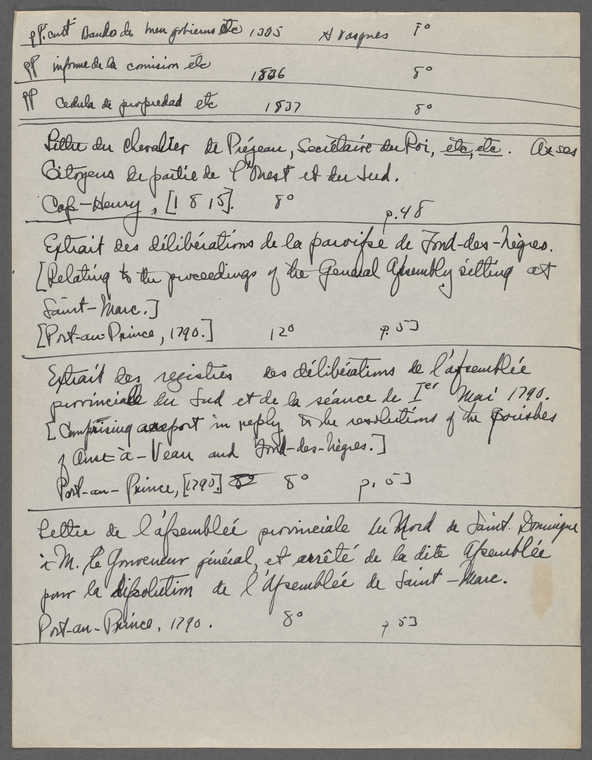 qP. cust Bando de buen gobierno etc 1305 A Vasques 8°
qP informe de la comision etc 1836 8°
qP Cedula de propiedad etc 1837 8°
Lettre du chevalier de Prézeau, Secrétaire du Roi, etc, etc. A ses
Citoyens de partie de l'Ouest et du Sud.
Cap-Henry, [1815]. 8° p. 48
Extrait des délibérations de la paroisse de Fond-des-Nègres.
[Relating to the proceedings of the General Assembly sitting at
Saint-Marc.]
[Port-au-Prince, 1790.] 12° p. 53
Extrait des registres des délibérations de l'assemblée
provinciale du Sud et de la séance de 1er Mai 1790.
[Comprising a report in reply to the resolutions of the parishes
of Anse-à-Veau and Fond-des-Nègres.]
Port-au-Prince, [1790] 8° 8° p. 53
Lettre de l'assemblée provinciale du Nord de Saint Domingue
à M. le Gouverneur général, et arrêté de la dite Assemblée
pour la dissolution de l'Assemblée de Saint-Marc.
Port-au-Prince, 1790. 8° p 53